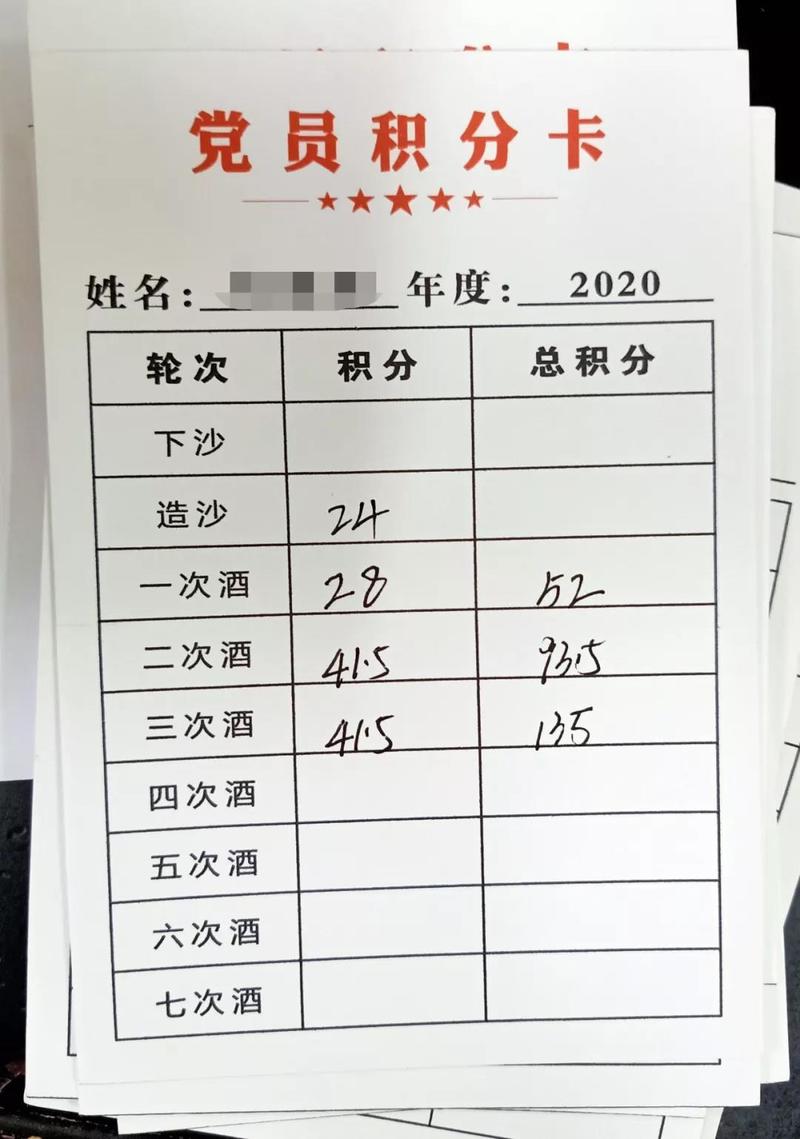 党员积分卡
姓名： 年度： 2020
轮次 积分 总积分
下沙
造沙 24
一次酒 28 52
二次酒 41.5 93.5
三次酒 41.5 135
四次酒
五次酒
六次酒
七次酒